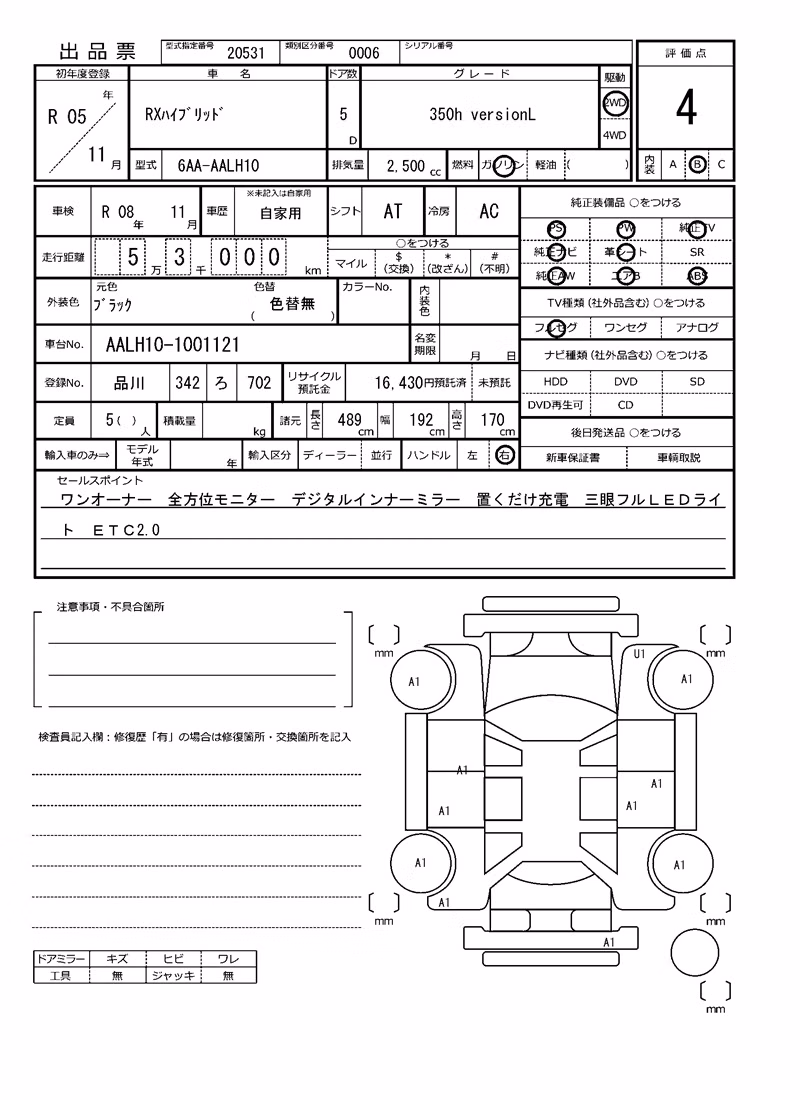 出品票 型式指定番号 20531 類別区分番号 0006 シリアル番号
評価点
4
内装 A B C
初年度登録 車名 ドア数 グレード 駆動
R 05 年 11 月 RXﾊｲﾌﾞﾘｯﾄﾞ 5 D 350h versionL 2WD 4WD
型式 6AA-AALH10 排気量 2,500 cc 燃料 ガソリン 軽油 ( )
車検 R 08 年 11 月 車歴 ※未記入は自家用 自家用 シフト AT 冷房 AC
走行距離 5 万 3 千 0 0 0 km
○をつける
マイル $(交換) *(改ざん) #(不明)
外装色 元色 ﾌﾞﾗｯｸ 色替 ( 色替無 ) カラーNo. 内装色
車台No. AALH10-1001121 名変期限 月 日
登録No. 品川 342 ろ 702 リサイクル預託金 16,430円預託済 未預託
定員 5( ) 人 積載量 kg 諸元 長さ 489 cm 幅 192 cm 高さ 170 cm
輸入車のみ⇒ モデル年式 年 輸入区分 ディーラー 並行 ハンドル 左 右
純正装備品 ○をつける
PS PW 純正TV
純正ナビ 革シート SR
純正AW エアB ABS
TV種類(社外品含む)○をつける
フルセグ ワンセグ アナログ
ナビ種類(社外品含む)○をつける
HDD DVD SD
DVD再生可 CD
後日発送品 ○をつける
新車保証書 車輌取説
セールスポイント
ワンオーナー 全方位モニター デジタルインナーミラー 置くだけ充電 三眼フルＬＥＤライ
ト ＥＴＣ2.0
注意事項・不具合箇所
検査員記入欄：修復歴「有」の場合は修復箇所・交換箇所を記入
ドアミラー キズ ヒビ ワレ
工具 無 ジャッキ 無
mm mm
U1
A1 A1
A1
A1
A1 A1
A1 A1
A1
mm mm
A1
mm